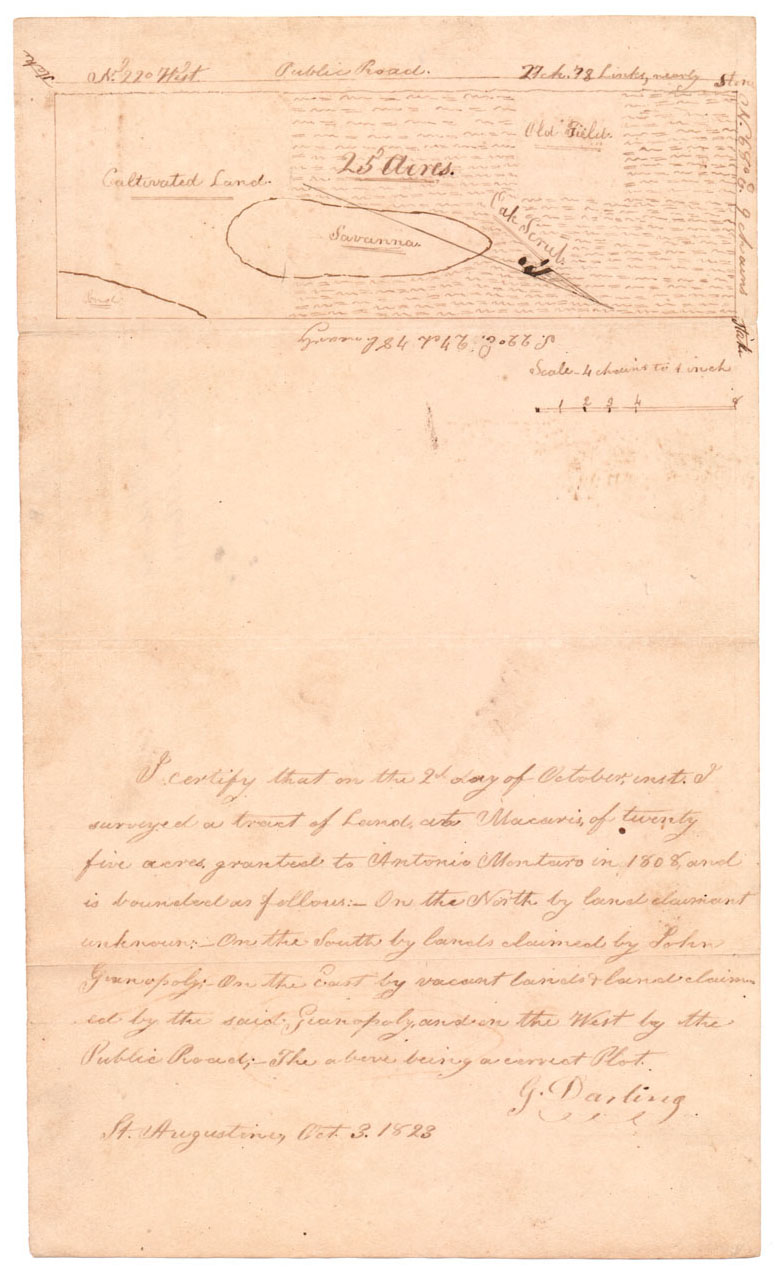 Stake
N. 22° West.
Public Road.
27 ch. 78 Links, nearly
N. 68° E. 9 chains
Stake
Old Field.
25 Acres.
Cultivated Land.
Oak Scrub
Savanna.
Pond
S. 22° E. 27 ch 78 l. nearly
Scale - 4 chains to 1 inch
1 2 3 4 8
I certify that on the 2d day of October, inst. I
surveyed a tract of Land, at Macaris, of twenty
five acres, granted to Antonio Montaro in 1808, and
is bounded as follows:- On the North by land claimant
unknown:- On the South by lands claimed by John
Gianopoly:- On the East by vacant lands & land claim-
ed by the said Gianopoly, and on the West by the
Public Road;- The above being a correct Plot.
G. Darling
St. Augustine, Oct. 3. 1823